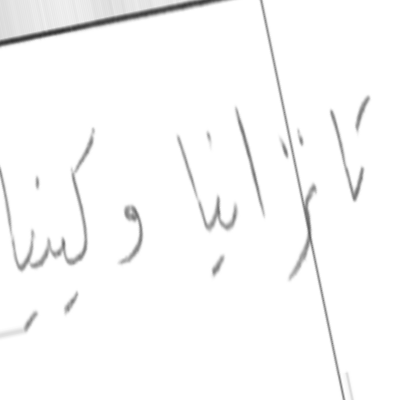 تانزانيا وكينيا